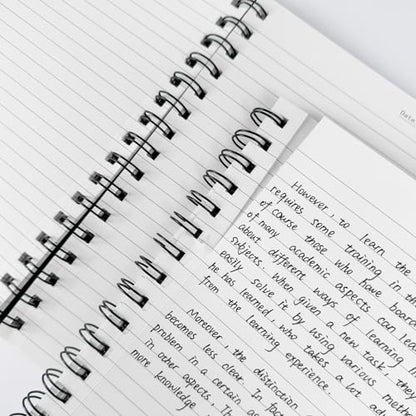 Date
However, to learn the
requires some training in
of course those who have board
of many academic aspects can lea
about different ways of learning in
subjects. When given a new task, the
easily solve it by using various met
he has learned, who takes a lot adv
from the learning experience.
Moreover, the distinction
becomes less clear. In fac
problem in a certain a
in other aspects. T
more knowledge